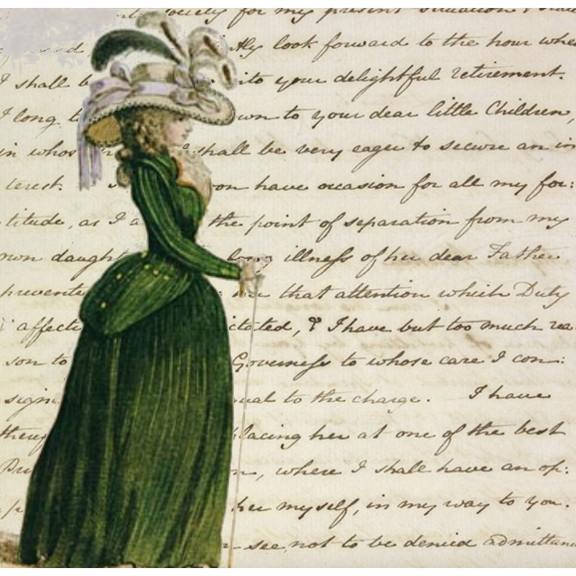 society for my present situation &
look forward to the hour when
I shall b into your delightful retirement.
I long t own to your dear little Children,
in whos shall be very eager to secure an in
terest. on have occasion for all my for:
titude, as I a the point of separation from my
own daught long illness of her dear Father
prevente that attention which Duty
& affecti ctated, & I have but too much rea
son to Governess to whose care I con:
sign ual to the charge. I have
there lacing her at one of the best
where I shall have an op:
her myself, in my way to you.
see, not to be denied admittanc